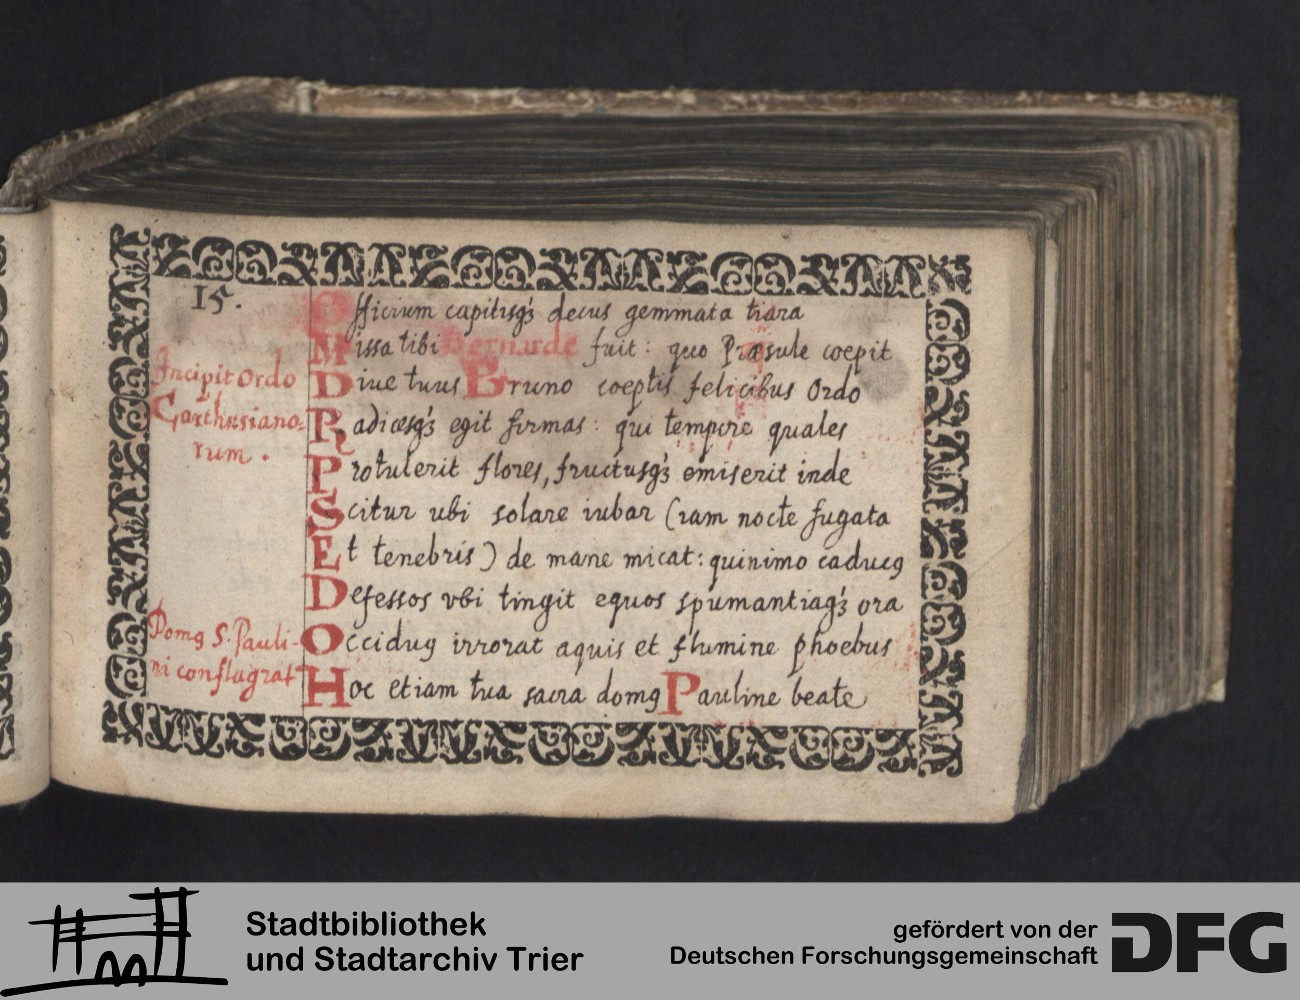 15.
Officium capitisqꝫ decus gemmata tiara
Missa tibi Bernarde fuit: quo Præsule coepit
Incipit Ordo
Diue tuus Bruno coeptis felicibus Ordo
Carthusiano=
Radicesqꝫ egit firmas: qui tempore quales
rum.
Protulerit flores, fructusqꝫ emiserit inde
Scitur ubi solare iubar (iam nocte fugata
Et tenebris) de mane micat: quinimo caducꝰ
Defessos vbi tingit equos spumantiaqꝫ ora
Domꝰ S. Pauli-
Occiduꝰ irrorat aquis et flumine phoebus
ni conflagrat
Hoc etiam tua sacra domꝰ Pauline beate
Stadtbibliothek
und Stadtarchiv Trier
gefördert von der
Deutschen Forschungsgemeinschaft
DFG